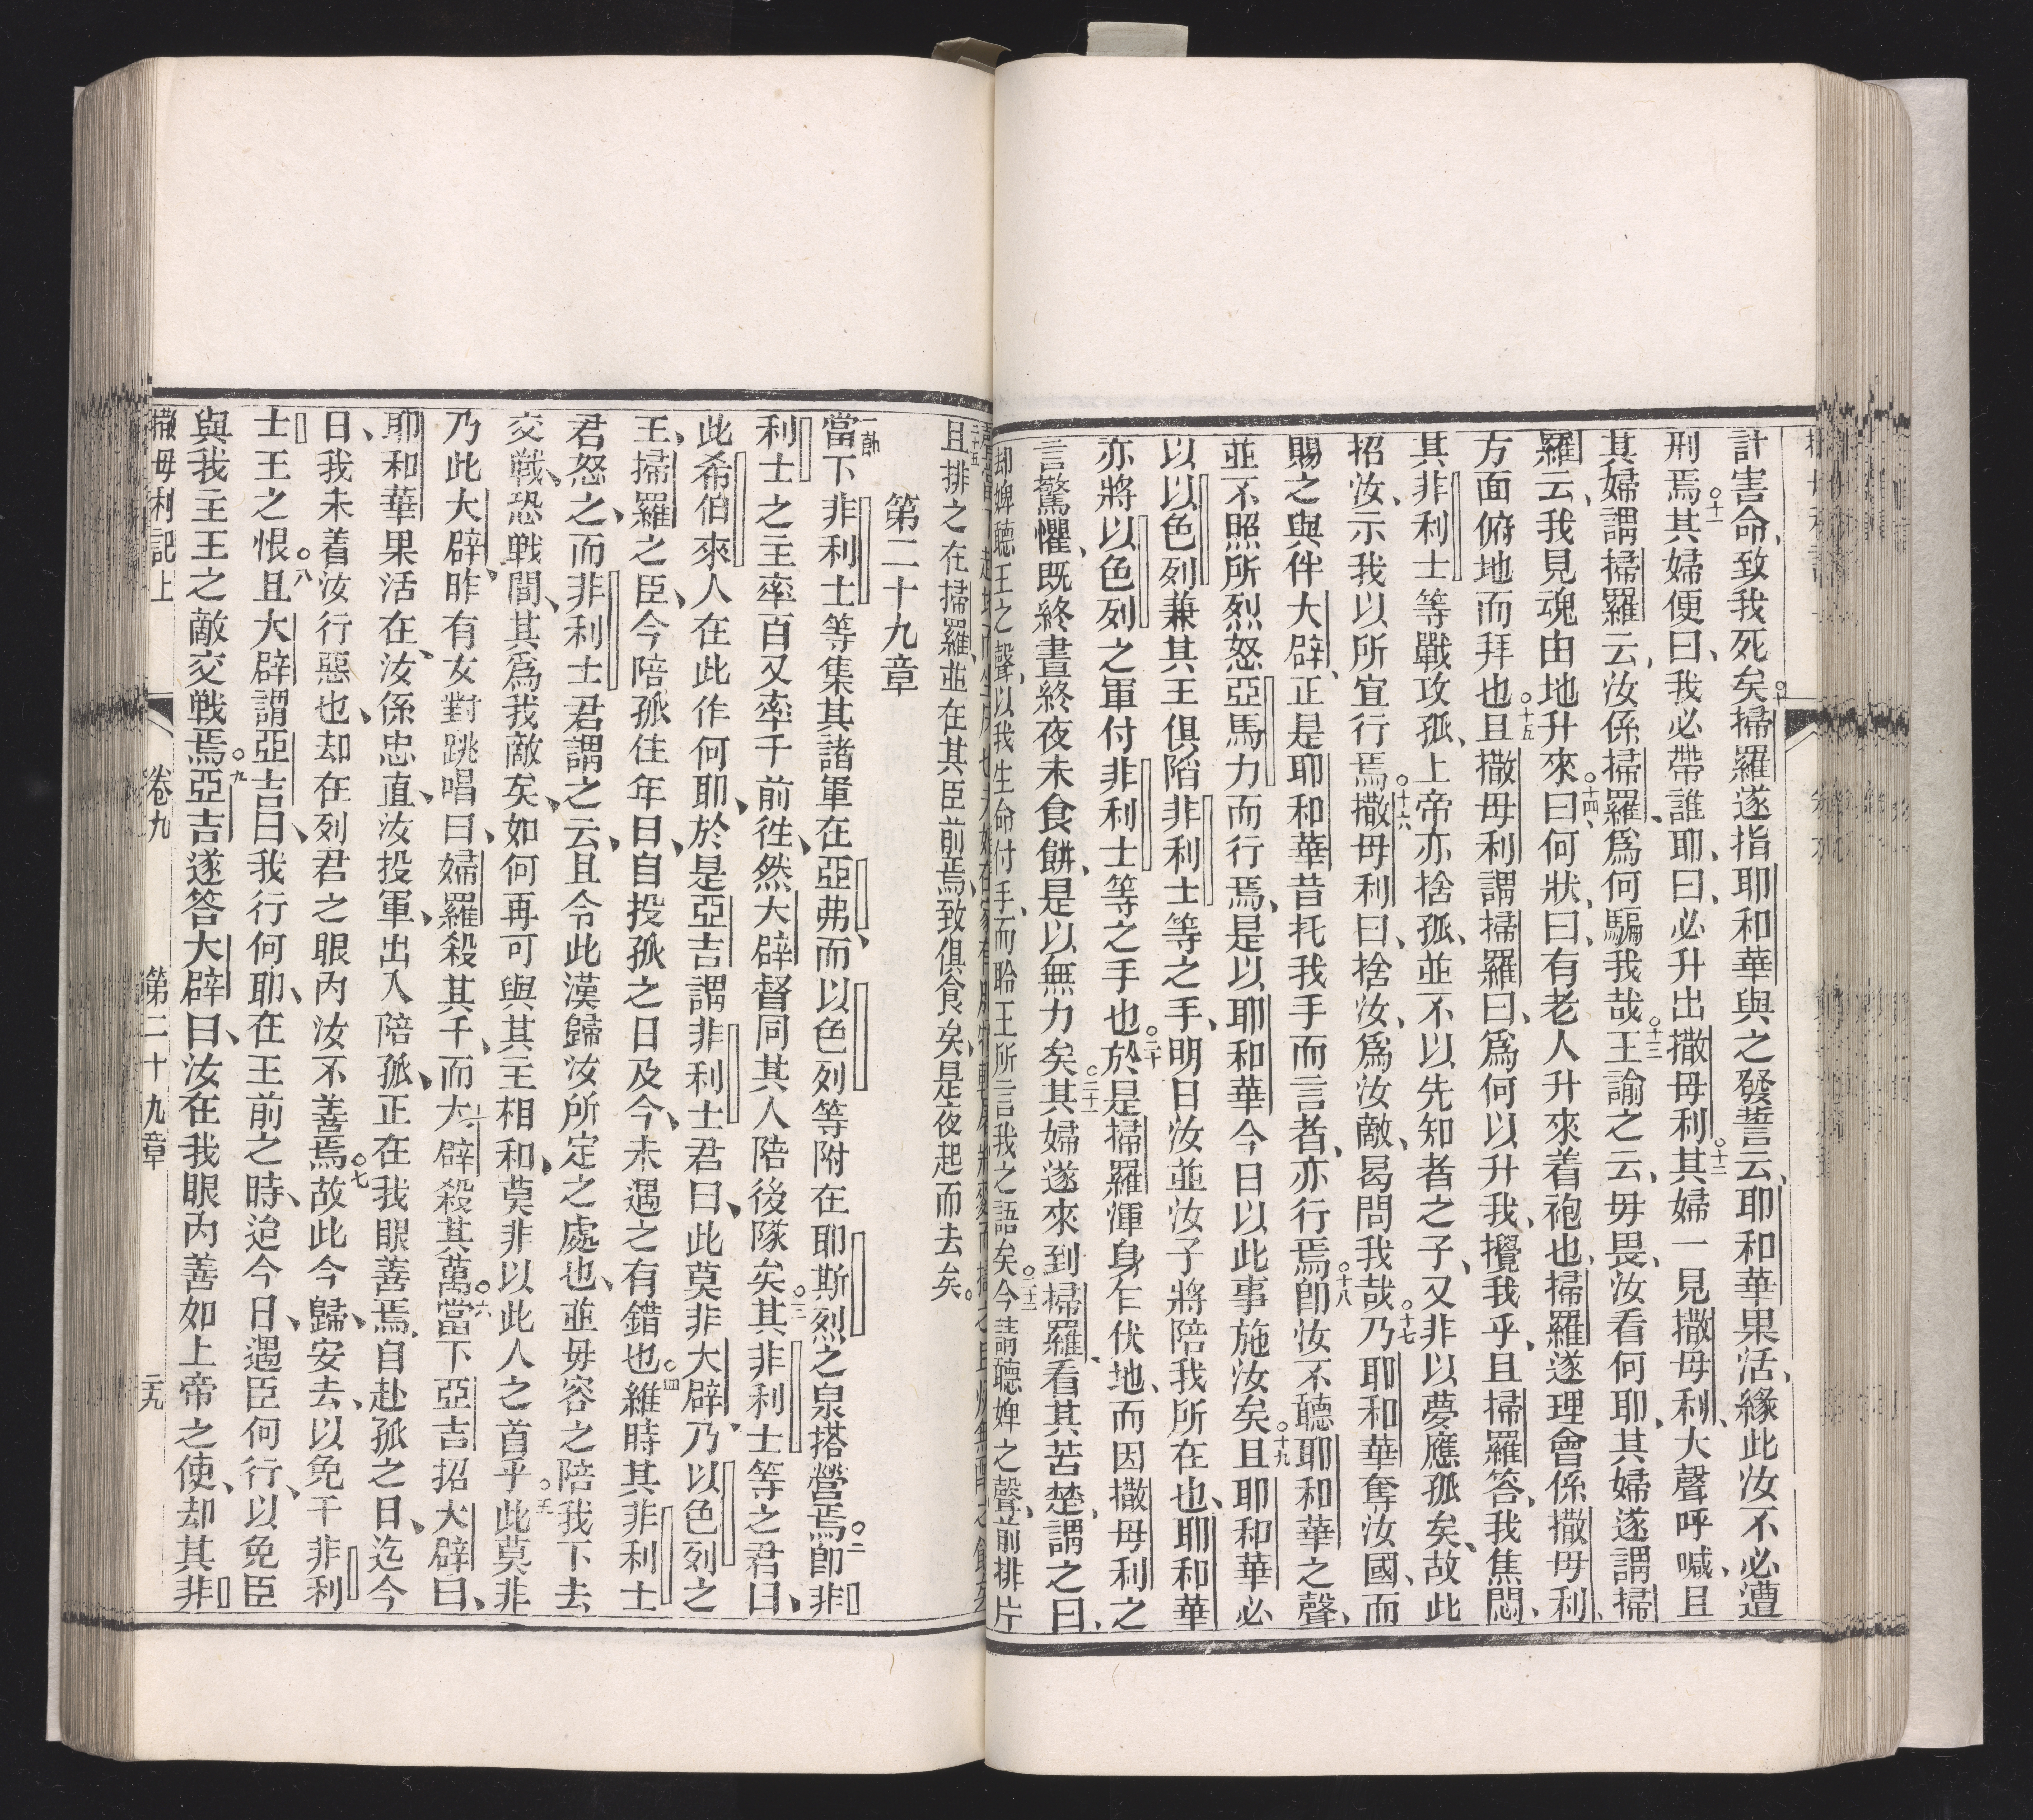 計害命、致我死矣。十掃羅遂指耶和華與之發誓云、耶和華果活、緣此汝不必遭
刑焉。十一其婦便曰、我必帶誰耶、曰、必升出撒母利。十二其婦一見撒母利、大聲呼喊、且
其婦謂掃羅云、汝係掃羅、爲何騙我哉。十三王諭之云、毋畏、汝看何耶、其婦遂謂掃
羅云、我見魂由地升來。十四曰、何狀、曰、有老人升來着袍也、掃羅遂理會係撒母利、
方面俯地而拜也。十五且撒母利謂掃羅曰、爲何以升我、攪我乎、且掃羅答、我焦悶、
其非利士等戰攻孤、上帝亦捨孤、並不以先知者之子、又非以夢應孤矣、故此
招汝、示我以所宜行焉。十六撒母利曰、捨汝、爲汝敵、曷問我哉。十七乃耶和華奪汝國、而
賜之與伴大辟、正是耶和華昔托我手而言者、亦行焉。十八卽汝不聽耶和華之聲、
並不照所烈怒亞馬力而行焉、是以耶和華今日以此事施汝矣。十九且耶和華必
以以色列兼其王俱陷非利士等之手、明日汝並汝子將陪我所在也、耶和華
亦將以色列之軍付非利士等之手也。二十於是掃羅渾身乍伏地、而因撒母利之
言驚懼、既終晝終夜未食餅、是以無力矣。二十一其婦遂來到掃羅、看其苦楚、謂之曰、
却婢聽王之聲、以我生命付手、而聆王所言我之語矣。二十二今請聽婢之聲、前排片
且排之在掃羅、並在其臣前焉、致俱食矣、是夜起而去矣。
第二十九章
一節當下非利士等集其諸軍在亞弗、而以色列等附在耶斯烈之泉搭營焉。二卽非
利士之主率百又率千前往、然大辟督同其人陪後隊矣。三其非利士等之君曰、
此希伯來人在此作何耶、於是亞吉謂非利士君曰、此莫非大辟、乃以色列之
王、掃羅之臣、今陪孤住年日、自投孤之日及今、未遇之有錯也。四維時其非利士
君怒之、而非利士君謂之云、且令此漢歸汝所定之處也、並毋容之陪我下去
交戰、恐戰間、其爲我敵矣、如何再可與其主相和、莫非以此人之首乎。五此莫非
乃此大辟、昨有女對跳唱曰、婦羅殺其千、而大辟殺其萬。六當下亞吉招大辟曰、
耶和華果活在、汝係忠直、汝投軍、出入陪孤、正在我眼善焉、自赴孤之日、迄今
日、我未着汝行惡也、却在列君之眼內汝不善焉。七故此今歸、安去、以免干非利
士王之恨。八且大辟謂亞吉曰、我行何耶、在王前之時、迨今日、遇臣何行、以免臣
與我主王之敵交戰焉。九亞吉遂答大辟曰、汝在我眼內善如上帝之使、却其非
撒母利記上 卷九 第二十九章 二九